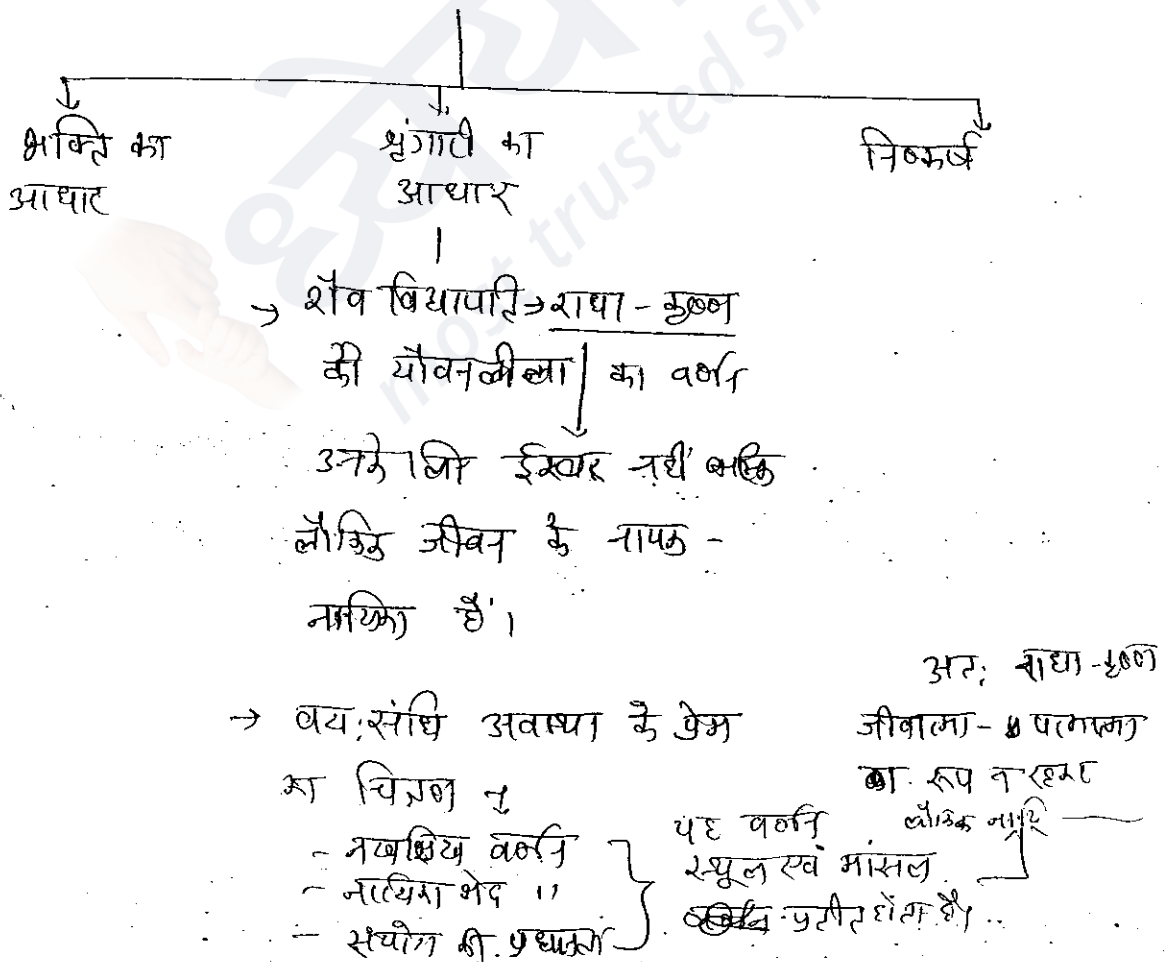 भक्ति का
आधार
श्रृंगारी का
आधार
निष्कर्ष
→ शैव विद्यापति → राधा - कृष्ण
की यौवनलीला का वर्णन
उनके लिए ईश्वर नहीं बल्कि
लौकिक जीवन के नायक -
नायिका हैं।
→ वय:संधि अवस्था के प्रेम
का चित्रण
- नखशिख वर्णन
- नायिका भेद "
- संयोग की प्रधानता
यह वर्णन
स्थूल एवं मांसल
प्रतीत होता है।
अत: राधा-कृष्ण
जीवात्मा - परमात्मा
का रूप न रहकर
लौकिक
most trusted